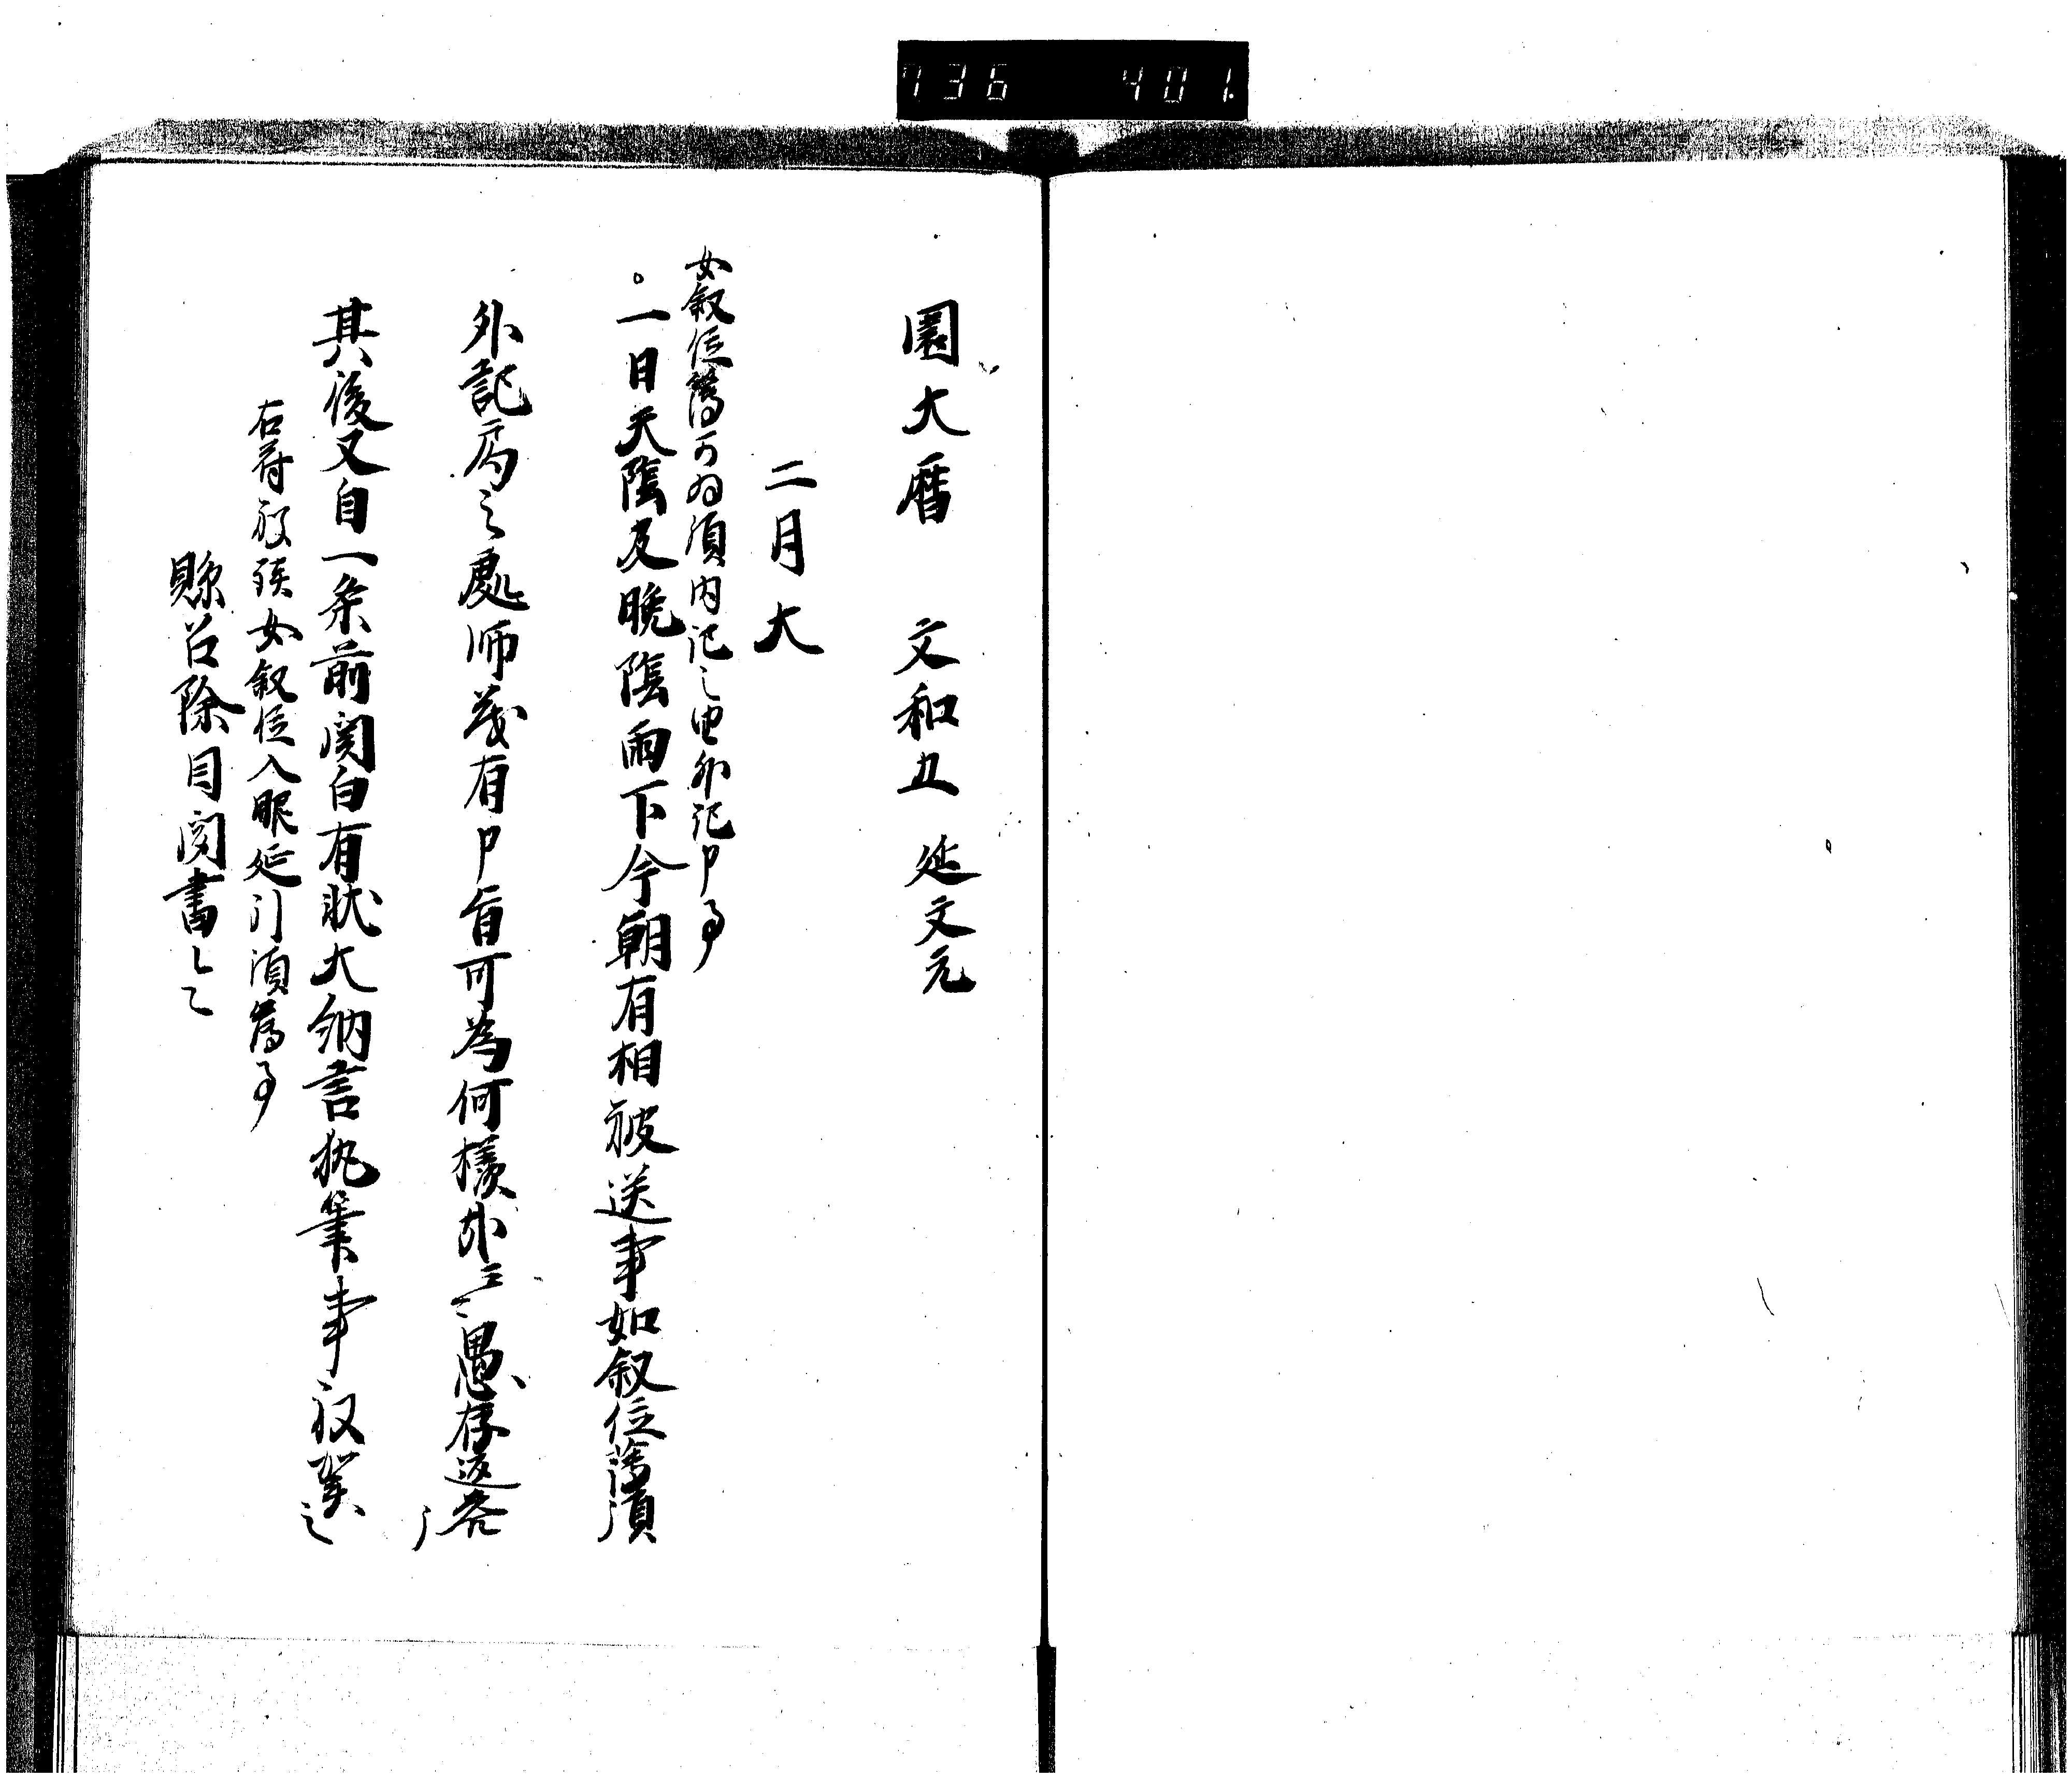 736 401
園大暦 文和五 延文元
二月大
女叙位簿可為須内記之由外記申事
一日天陰及晩陰雨下今朝有相被送事如叙位簿須
外記局之處師茂有申旨可為何様哉云々愚存返答
其後又自一条前関白有状大納言執筆事被談之
右府被談女叙位入眼延引須簿事
縣召除目聞書